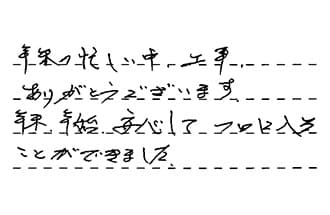 年末の忙しい中、工事、
ありがとうございます
年末、年始、安心してフロに入る
ことができました。